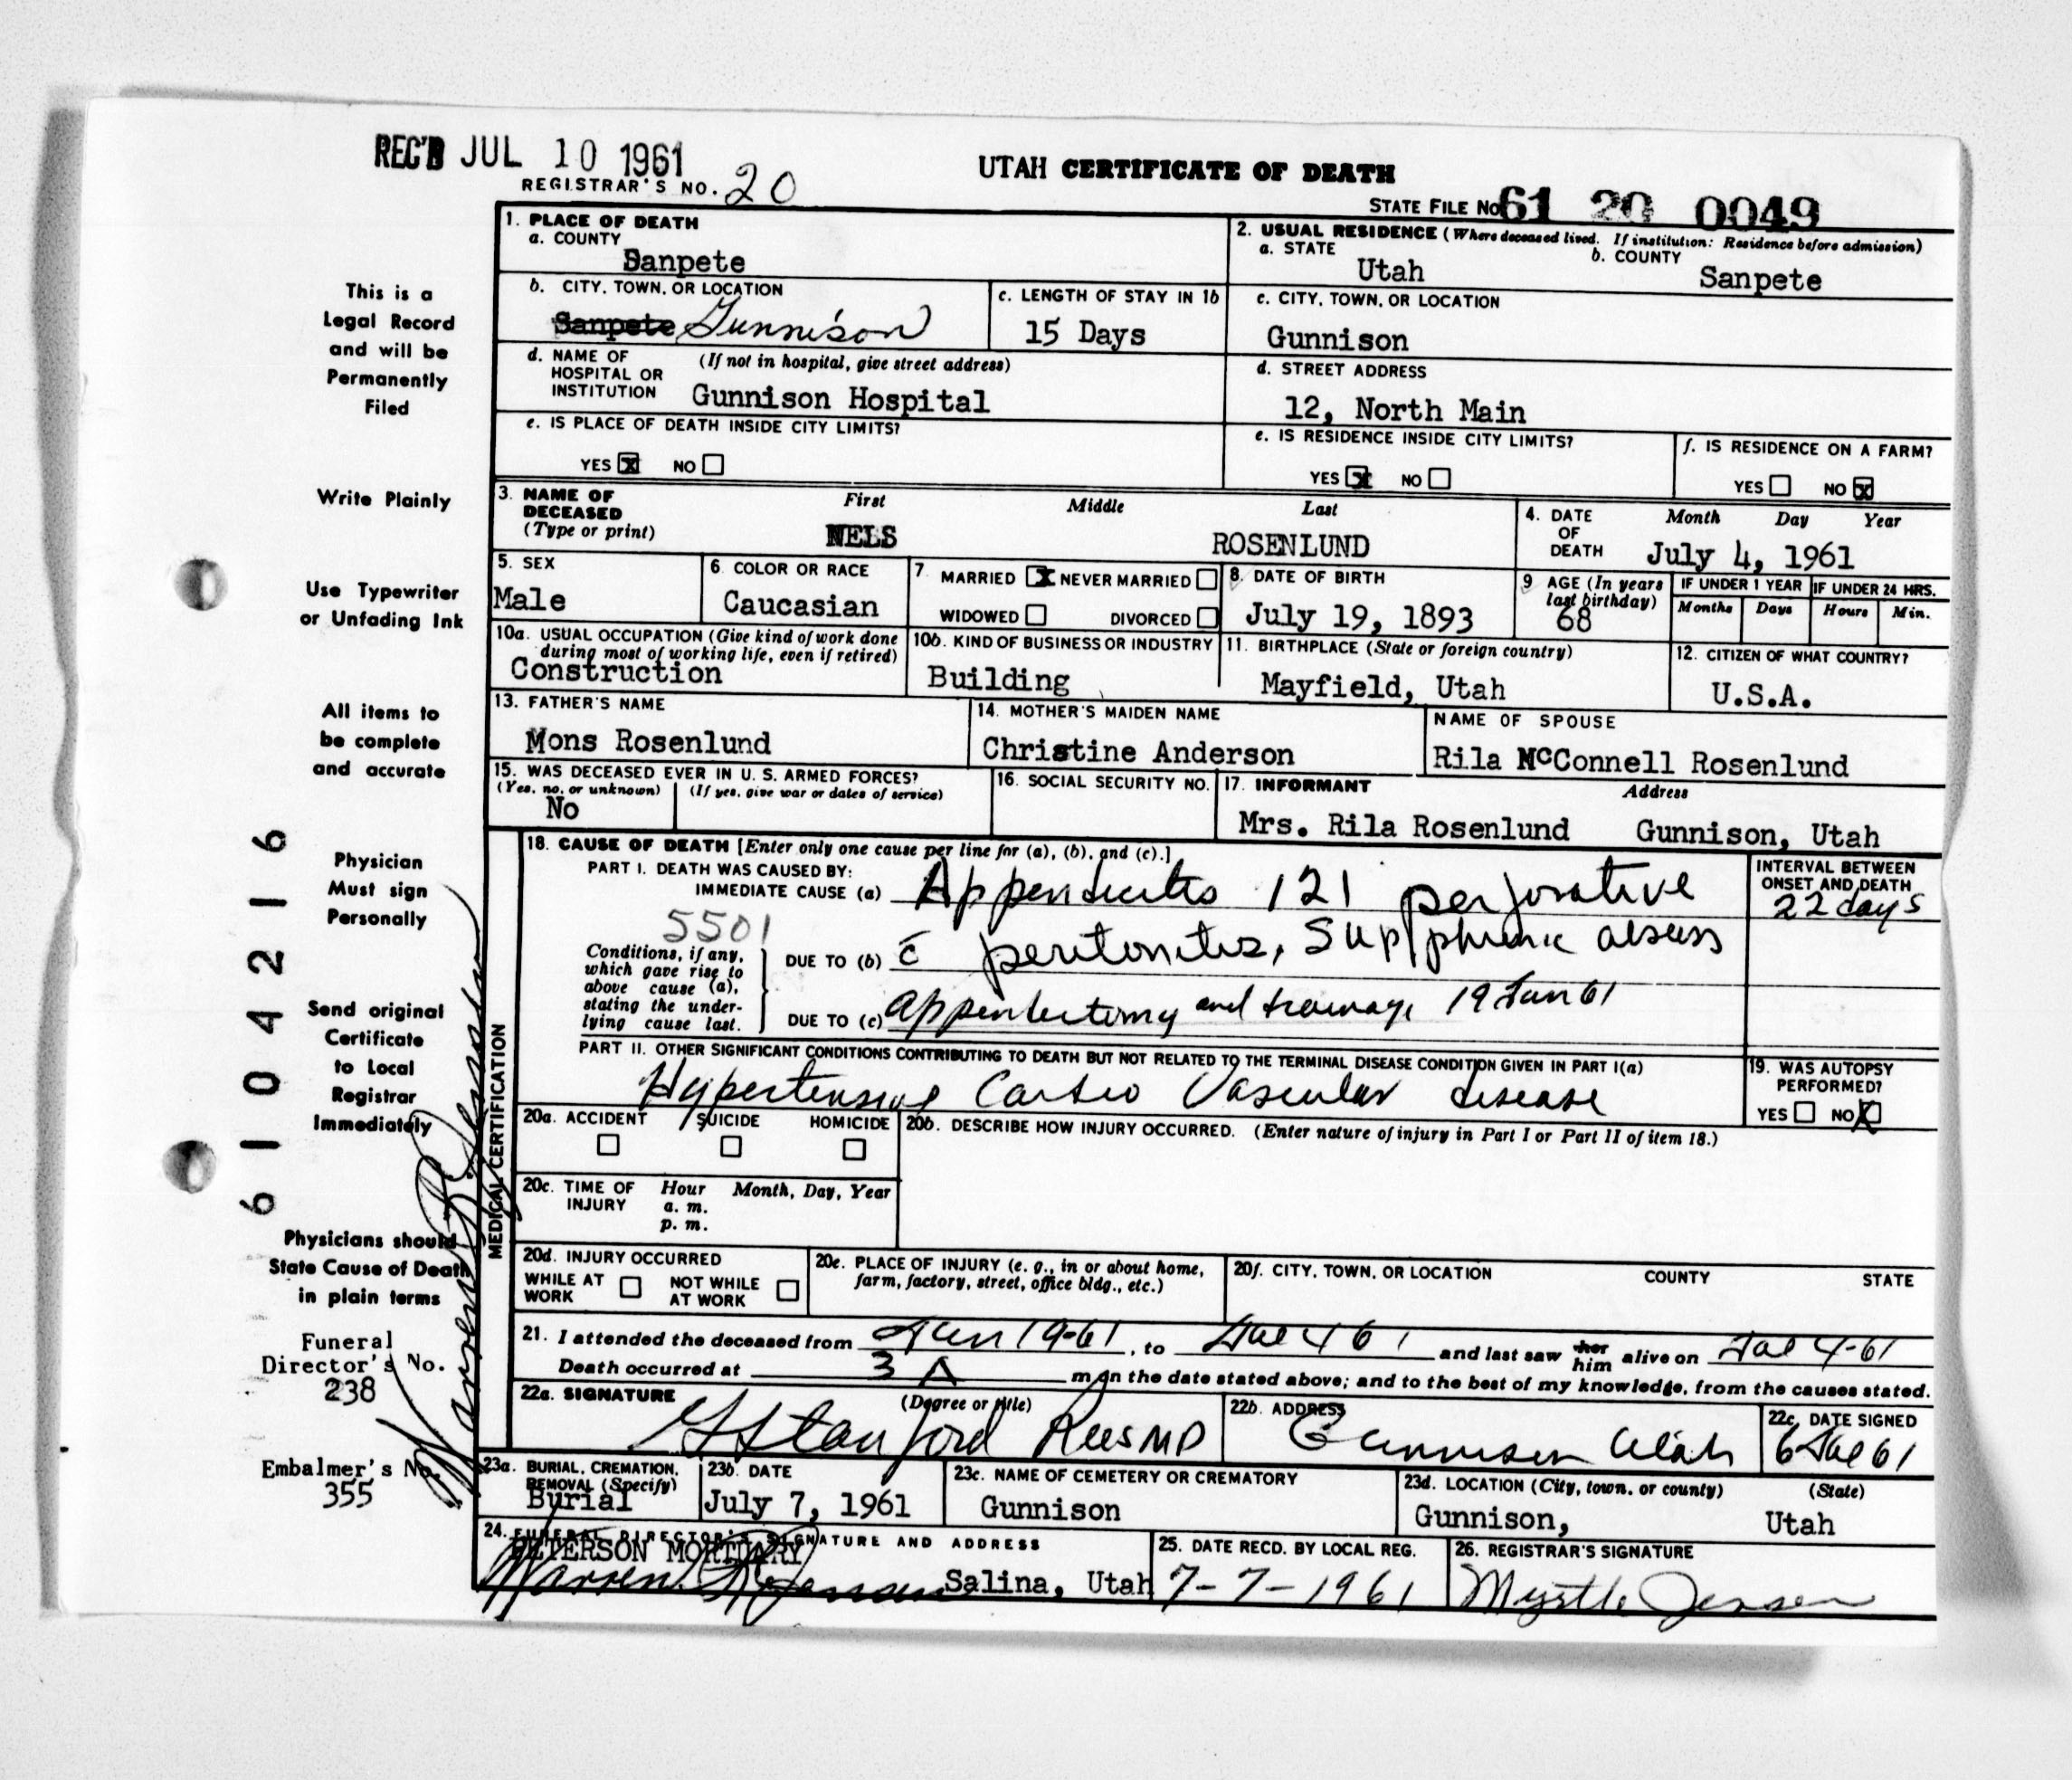 REC'D JUL 10 1961
REGISTRAR'S NO. 20
UTAH CERTIFICATE OF DEATH
STATE FILE NO. 61 20 0049
1. PLACE OF DEATH
a. COUNTY
Sanpete
2. USUAL RESIDENCE (Where deceased lived. If institution: Residence before admission)
a. STATE b. COUNTY
Utah Sanpete
b. CITY, TOWN, OR LOCATION
Sanpete Gunnison
c. LENGTH OF STAY IN 1b
15 Days
c. CITY, TOWN, OR LOCATION
Gunnison
d. NAME OF HOSPITAL OR INSTITUTION (If not in hospital, give street address)
Gunnison Hospital
d. STREET ADDRESS
12, North Main
e. IS PLACE OF DEATH INSIDE CITY LIMITS?
YES X NO
e. IS RESIDENCE INSIDE CITY LIMITS?
YES X NO
f. IS RESIDENCE ON A FARM?
YES NO X
3. NAME OF DECEASED (Type or print)
First Middle Last
NELS ROSENLUND
4. DATE OF DEATH Month Day Year
July 4, 1961
5. SEX
Male
6. COLOR OR RACE
Caucasian
7. MARRIED X NEVER MARRIED
WIDOWED DIVORCED
8. DATE OF BIRTH
July 19, 1893
9. AGE (In years last birthday)
68
IF UNDER 1 YEAR IF UNDER 24 HRS.
Months Days Hours Min.
10a. USUAL OCCUPATION (Give kind of work done during most of working life, even if retired)
Construction
10b. KIND OF BUSINESS OR INDUSTRY
Building
11. BIRTHPLACE (State or foreign country)
Mayfield, Utah
12. CITIZEN OF WHAT COUNTRY?
U.S.A.
13. FATHER'S NAME
Mons Rosenlund
14. MOTHER'S MAIDEN NAME
Christine Anderson
NAME OF SPOUSE
Rila McConnell Rosenlund
15. WAS DECEASED EVER IN U. S. ARMED FORCES?
(Yes, no, or unknown) (If yes, give war or dates of service)
No
16. SOCIAL SECURITY NO.
17. INFORMANT Address
Mrs. Rila Rosenlund Gunnison, Utah
MEDICAL CERTIFICATION
18. CAUSE OF DEATH [Enter only one cause per line for (a), (b), and (c).]
PART I. DEATH WAS CAUSED BY:
IMMEDIATE CAUSE (a) Appendicitis 121 perforative
INTERVAL BETWEEN ONSET AND DEATH
22 days
5501
Conditions, if any, which gave rise to above cause (a), stating the underlying cause last.
DUE TO (b) c̄ peritonitis, abscess
DUE TO (c) appendectomy and drainage 19 Jun 61
PART II. OTHER SIGNIFICANT CONDITIONS CONTRIBUTING TO DEATH BUT NOT RELATED TO THE TERMINAL DISEASE CONDITION GIVEN IN PART I(a)
Hypertensive Cardio Vascular disease
19. WAS AUTOPSY PERFORMED?
YES NO X
20a. ACCIDENT SUICIDE HOMICIDE
20b. DESCRIBE HOW INJURY OCCURRED. (Enter nature of injury in Part I or Part II of item 18.)
20c. TIME OF INJURY Hour Month, Day, Year
a. m.
p. m.
20d. INJURY OCCURRED
WHILE AT WORK NOT WHILE AT WORK
20e. PLACE OF INJURY (e. g., in or about home, farm, factory, street, office bldg., etc.)
20f. CITY, TOWN, OR LOCATION COUNTY STATE
21. I attended the deceased from Jun 19-61, to Jul 4 61 and last saw her him alive on Jul 4-61
Death occurred at 3 A m on the date stated above; and to the best of my knowledge, from the causes stated.
22a. SIGNATURE (Degree or title)
G Stanford Rees MD
22b. ADDRESS
Gunnison Utah
22c. DATE SIGNED
6 Jul 61
23a. BURIAL, CREMATION, REMOVAL (Specify)
Burial
23b. DATE
July 7, 1961
23c. NAME OF CEMETERY OR CREMATORY
Gunnison
23d. LOCATION (City, town, or county) (State)
Gunnison, Utah
24. FUNERAL DIRECTOR'S SIGNATURE AND ADDRESS
PETERSON MORTUARY
Warren Salina, Utah
25. DATE RECD. BY LOCAL REG.
7-7-1961
26. REGISTRAR'S SIGNATURE
Myrtle Jensen
This is a
Legal Record
and will be
Permanently
Filed
Write Plainly
Use Typewriter
or Unfading Ink
All items to
be complete
and accurate
Physician
Must sign
Personally
Send original
Certificate
to Local
Registrar
Immediately
Physicians should
State Cause of Death
in plain terms
Funeral
Director's No.
238
Embalmer's No.
355
Warren
6104216